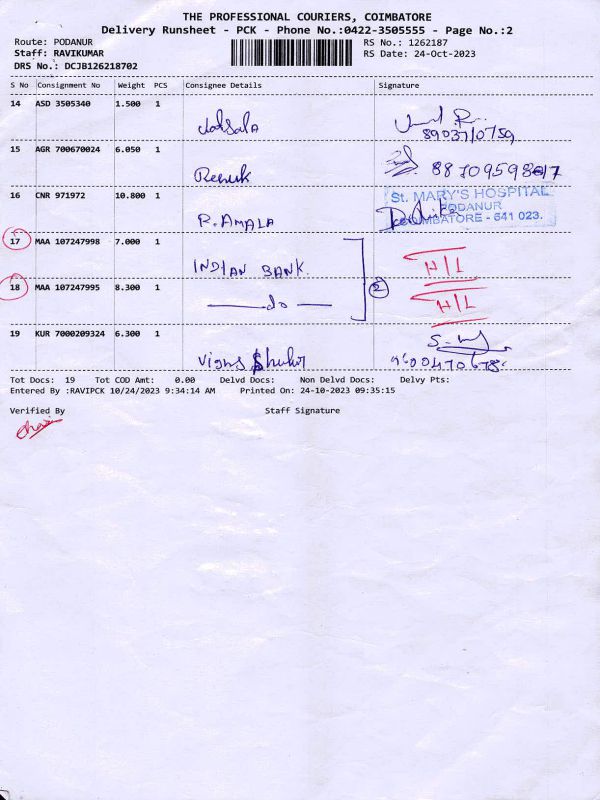 THE PROFESSIONAL COURIERS, COIMBATORE
Delivery Runsheet - PCK - Phone No.:0422-3505555 - Page No.:2
Route: PODANUR
RS No.: 1262187
Staff: RAVIKUMAR
RS Date: 24-Oct-2023
DRS No.: DCJB126218702
S No Consignment No Weight PCS Consignee Details Signature
14 ASD 3505340 1.500 1
8903710759
15 AGR 700670024 6.050 1
Renuk
16 CNR 971972 10.800 1
R. AMALA
St. MARY'S HOSPITAL
PODANUR
COIMBATORE - 641 023.
17 MAA 107247998 7.000 1
INDIAN BANK.
H/L
18 MAA 107247995 8.300 1
do
2
H/L
19 KUR 7000209324 6.300 1
Tot Docs: 19 Tot COD Amt: 0.00 Delvd Docs: Non Delvd Docs: Delvy Pts:
Entered By :RAVIPCK 10/24/2023 9:34:14 AM Printed On: 24-10-2023 09:35:15
Verified By Staff Signature